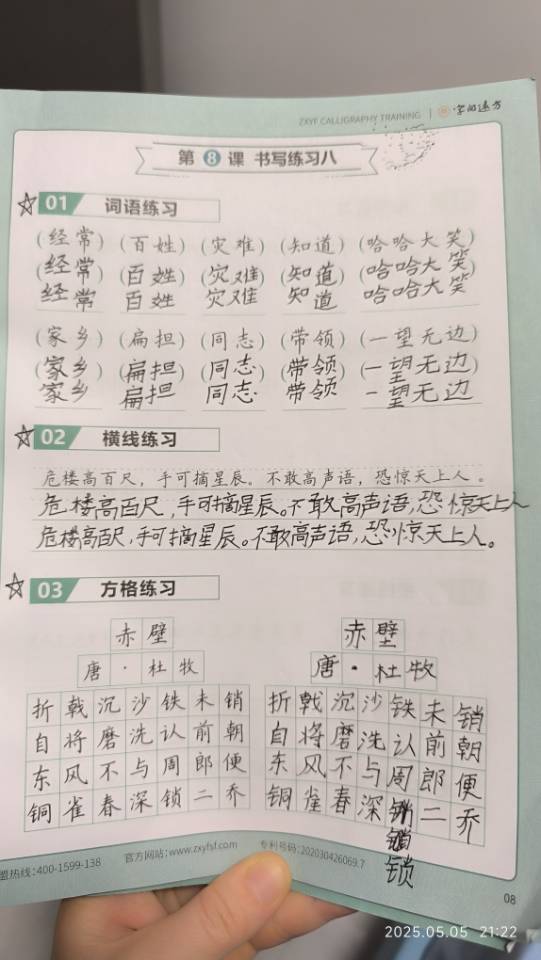 ZXYF CALLIGRAPHY TRAINING | 字的远方
第8课 书写练习八
01 词语练习
(经常) (百姓) (灾难) (知道) (哈哈大笑)
(经常) (百姓) (灾难) (知道) (哈哈大笑)
经常 百姓 灾难 知道 哈哈大笑
(家乡) (扁担) (同志) (带领) (一望无边)
(家乡) (扁担) (同志) (带领) (一望无边)
家乡 扁担 同志 带领 一望无边
02 横线练习
危楼高百尺，手可摘星辰。不敢高声语，恐惊天上人。
危楼高百尺,手可摘星辰。不敢高声语,恐惊天上人
危楼高百尺,手可摘星辰。不敢高声语,恐惊天上人。
03 方格练习
赤壁
唐·杜牧
折戟沉沙铁未销
自将磨洗认前朝
东风不与周郎便
铜雀春深锁二乔
赤壁
唐·杜牧
折戟沉沙铁未销
自将磨洗认前朝
东风不与周郎便
铜雀春深锁二乔
锁
盟热线:400-1599-138 官方网站:www.zxyfsf.com 专利号码:202030426069.7
08
2025.05.05 21:22